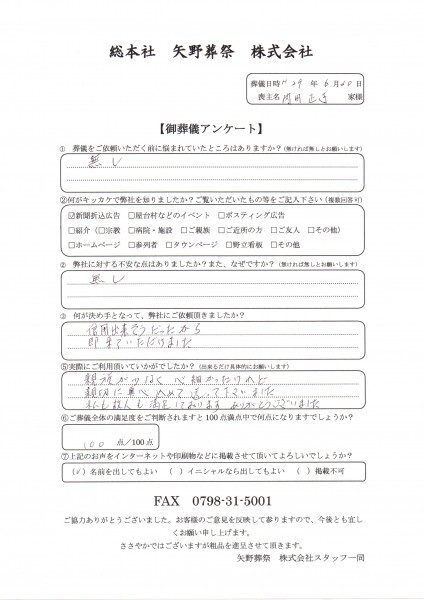 総本社 矢野葬祭 株式会社
葬儀日時 H29 年 6 月 20 日
喪主名 正 家様
【御葬儀アンケート】
① 葬儀をご依頼いただく前に悩まれていたところはありますか?(無ければ無しとお願いします)
無し
②何がキッカケで弊社を知りましたか?ご覧いただいたもの等をご記入下さい(複数回答可)
☑新聞折込広告 □屋台村などのイベント □ポスティング広告
□紹介(□宗教 □病院・施設 □ご親族 □ご近所の方 □ご友人 □その他)
□ホームページ □参列者 □タウンページ □野立看板 □その他
② 弊社に対する不安な点はありましたか?また、なぜですか?(無ければ無しとお願いします)
無し
③ 何が決め手となって、弊社にご依頼頂きましたか?
信用出来そうだったから
即来ていただけました
⑤実際にご利用頂いていかがでしたか?(出来るだけ具体的にお願いします)
親族が少なく心細かったけれど
親切に真心込めて送って下さいました
私も故人も満足しております ありがとうございました
⑥ご葬儀全体の満足度をご判断されますと100点満点中で何点になりますでしょうか?
100 点/100点
⑦上記のお声をインターネットや印刷物などに掲載させて頂いてよろしいでしょうか?
(✓)名前を出してもよい ( )イニシャルなら出してもよい ( )掲載不可
FAX 0798-31-5001
ご協力ありがとうございました。お客様のご意見を反映して参りますので、今後とも宜し
くお願い申し上げます。
ささやかではございますが粗品を進呈させて頂きます。
矢野葬祭 株式会社スタッフ一同